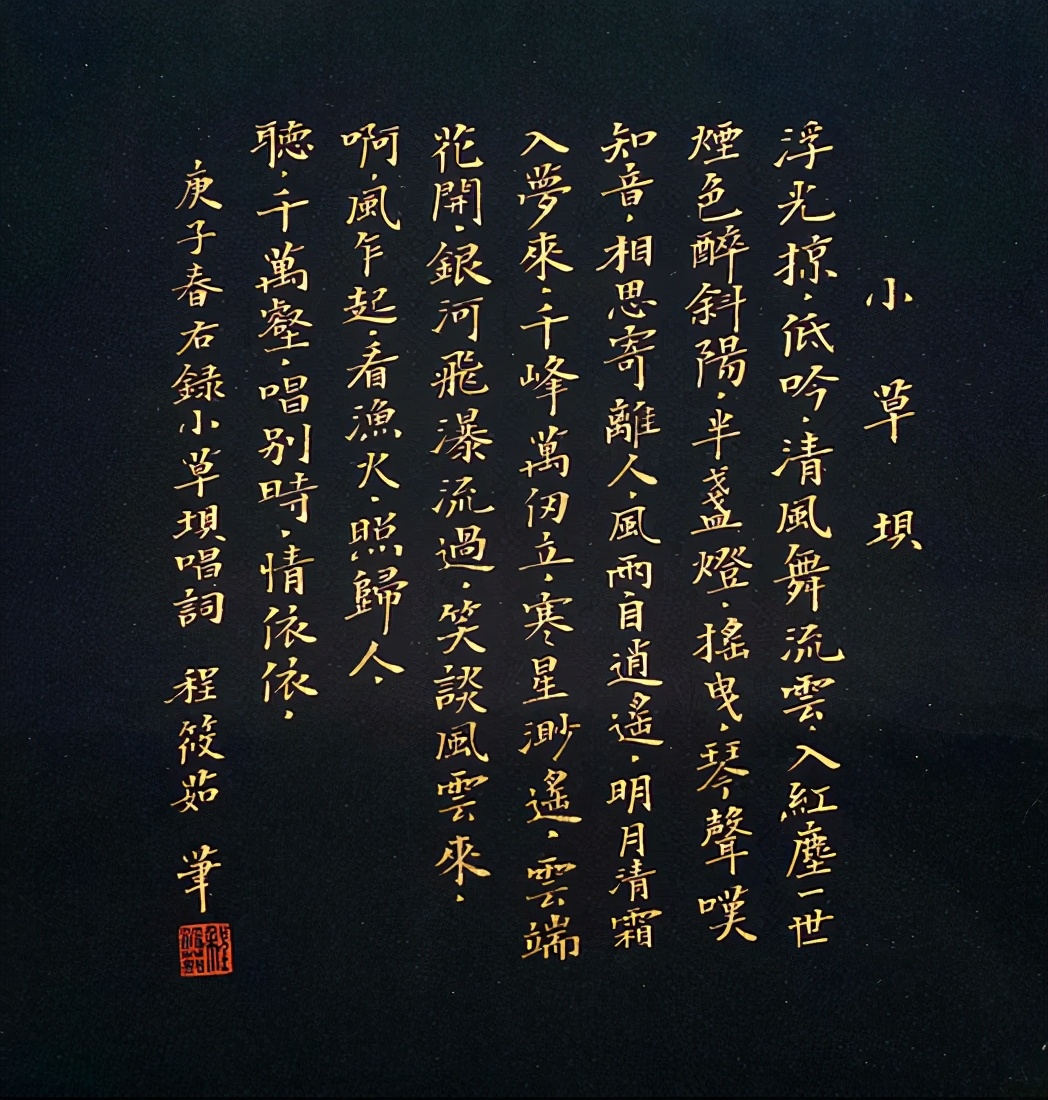 小草埧
浮光掠.低吟.清風舞流雲.入紅塵一世
煙色醉斜陽.半盞燈.搖曳.琴聲嘆
知音.相思寄離人.風雨自逍遙.明月清霜
入夢來.千峰萬仞立.寒星渺遙.雲端
花開.銀河飛瀑流過.笑談風雲來.
啊.風乍起.看漁火.照歸人.
聽.千萬壑.唱别時.情依依.
庚子春右録小草埧唱詞 程筱茹 筆